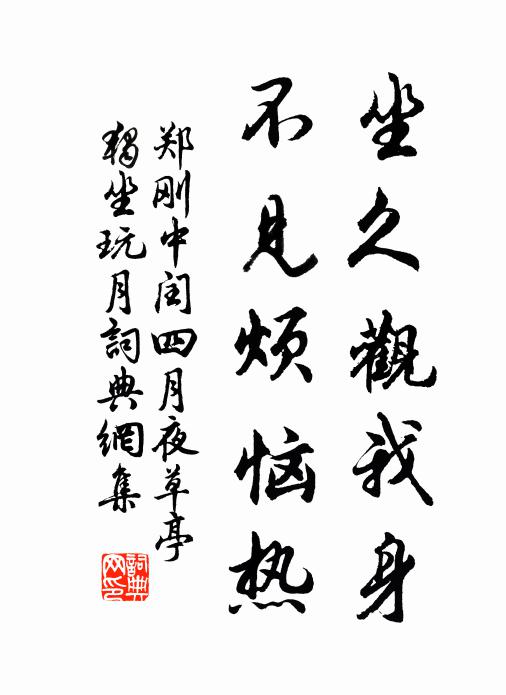 坐久觀我身
不见烦恼热
郑刚中闰四月夜草亭
独坐玩月詞典網集
詞典
网印